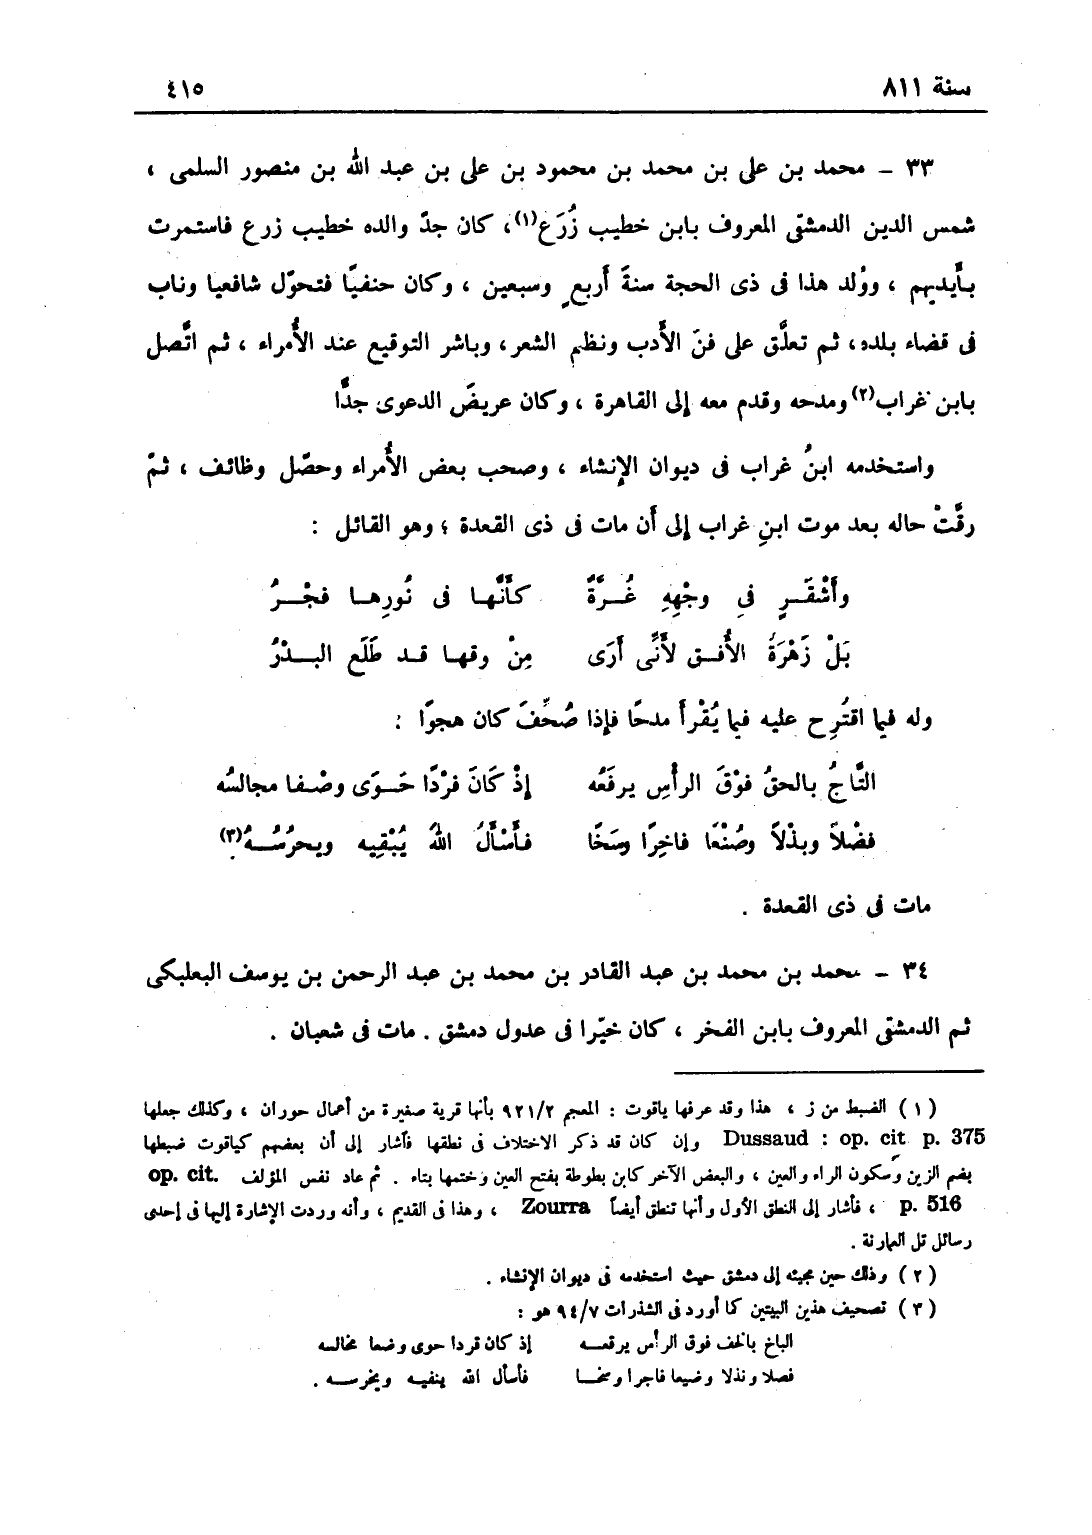 سنة ٨١١ ٤١٥
٣٣ – محمد بن على بن محمد بن محمود بن على بن عبد الله بن منصور السلمى ،
شمس الدين الدمشقى المعروف بابن خطيب زُرَع(١)، كان جدّ والده خطيب زرع فاستمرت
بأَيديهم ، ووُلد هذا فى ذى الحجة سنةَ أَربعٍ وسبعين ، وكان حنفيًّا فتحوّل شافعيا وناب
فى قضاء بلده، ثم تعلَّق على فنّ الأَدب ونظم الشعر، وباشر التوقيع عند الأُمراء ، ثم اتَّصل
بابن غراب(٢) ومدحه وقدم معه إلى القاهرة ، وكان عريضَ الدعوى جدًّا
واستخدمه ابنُ غراب فى ديوان الإنشاء ، وصحب بعض الأُمراء وحصّل وظائف ، ثمّ
رقَّتْ حاله بعد موت ابنِ غراب إلى أَن مات فى ذى القعدة ؛ وهو القائل :
وأَشْقَــرٍ فِى وجْهِهِ غُــرَّةٌ كأَنَّهــا فى نُورِهـا فجْــرُ
بَلْ زَهْرَةُ الأُفــق لأَنَّى أَرَى مِنْ وقهـا قــد طَلَع البــدْرُ
وله فيما اقتُرِح عليه فيما يُقْرأَ مدحًا فإذا صُحِّفَ كان هجوًا :
التَّاجُ بالحقُ فوْقَ الرأْسِ يرفَعُه إذْ كَانَ فرْدًا حَــوَى وصْـفا مجالسُه
فضْلاً وبذْلاً وصُنْعَا فاخِرًا وسَخًا فأَسْأَلُ اللهُ يُبْقِيه ويحرُسُــهُ(٣)
مات فى ذى القعدة .
٣٤ – محمد بن محمد بن عبد القادر بن محمد بن عبد الرحمن بن يوسف البعلبكى
ثم الدمشقى المعروف بابن الفخر ، كان خيّرا فى عدول دمشق . مات فى شعبان .
( ١ ) الضبط من ز ، هذا وقد عرفها ياقوت : المعجم ٩٢١/٢ بأنها قرية صغيرة من أعمال حوران ، وكذلك جعلها
Dussaud : op. cit p. 375 وإن كان قد ذكر الاختلاف فى نطقها فأشار إلى أن بعضهم كياقوت ضبطها
بضم الزين وسكون الراء والعين ، والبعض الآخر كابن بطوطة بفتح العين وختمها بتاء . ثم عاد نفس المؤلف op. cit.
p. 516 ، فأشار إلى النطق الأول وأنها تنطق أيضاً Zourra ، وهذا فى القديم ، وأنه وردت الإشارة إليها فى إحدى
رسائل تل العمارنة .
( ٢ ) وذلك حين مجيئه إلى دمشق حيث استخدمه فى ديوان الإنشاء .
( ٣ ) تصحيف هذين البيتين كما أورد فى الشذرات ٩٤/٧ هو :
الباخ بالخف فوق الرأس يرقعــه إذ كان قردا حوى وضعا مخالسه
فصلا ونذلا وضيعا فاجرا وسخــا فأسأل الله ينفيــه ويخرســه .